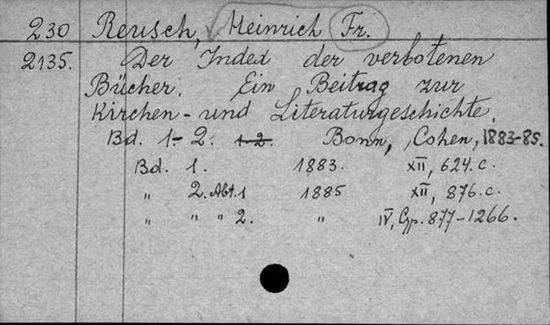 230 Reusch, Heinrich Fr.
2135. Der Index der verbotenen
Bücher. Ein Beitrag zur
Kirchen- und Literaturgeschichte.
Bd. 1-2. 1-2. Bonn, Cohen, 1883-85.
Bd. 1. 1883. XII, 624.c.
" 2. Abt. 1 1885 XII, 876.c.
" " " 2. " IV, Cp. 877-1266.